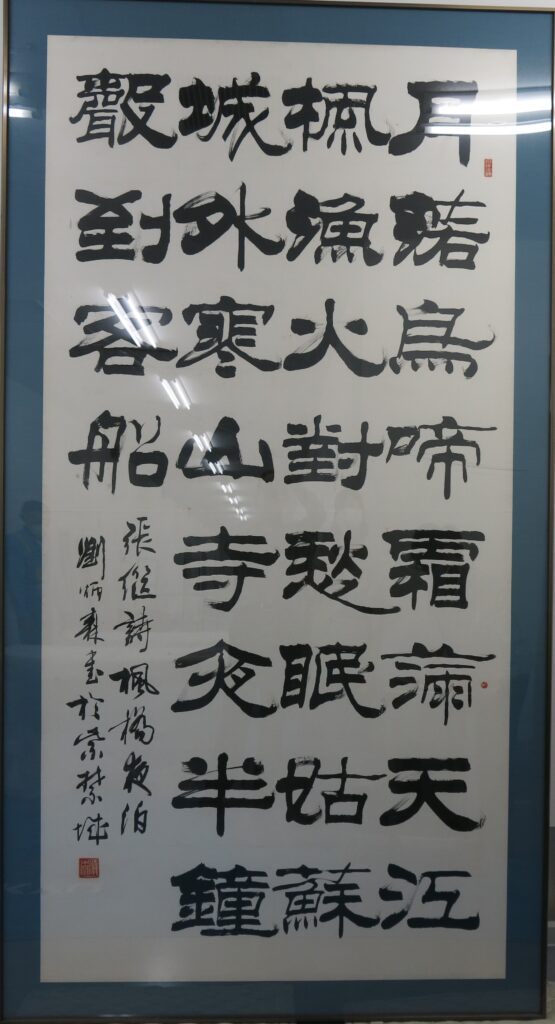 月落烏啼霜滿天江
楓漁火對愁眠姑蘇
城外寒山寺夜半鐘
聲到客船
張繼詩楓橋夜泊
劉炳森書於紫禁城